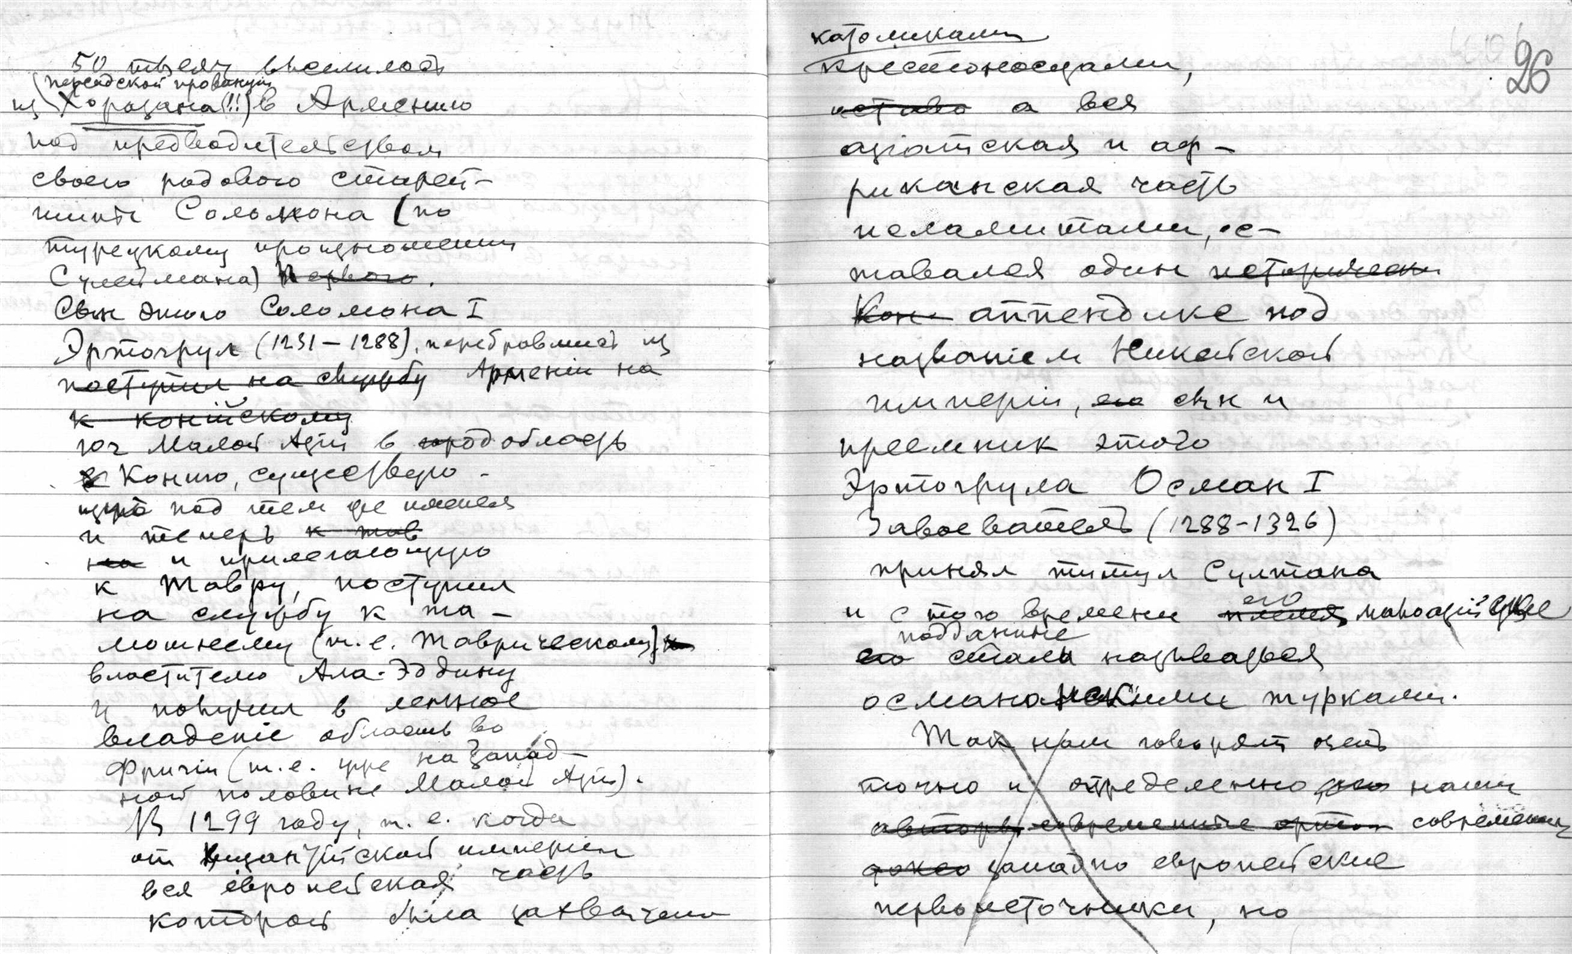 50 тысяч выселилось
(персидской провинции
из Хоразана!!) в Армению
под предводительством
своего родового старей-
шины Соломона (по
турецкому произношению
Сулеймана) Первого.
Сын этого Соломона I
Эртогрул (1231–1288), перебравшись из
поступил на службу Армении на
к конійскому
юг Малой Азіи в область
Конию, существую-
щую под тем же именем
и теперь к тав
на и прилегающую
к Тавру, поступил
на службу к та-
мошнему (т.е. Таврическому)
властителю Ала-Эддину
и получил в ленное
владение область во
Фригіи (т.е. уже на Запад-
ной половине Малой Азіи).
В 1299 году, т.е. когда
от Византійской империи
вся европейская часть
которой была захвачена
26
католиками
крестоносцами,
а вся
азіатская и аф-
риканская часть
исламитами, ос-
тавался один исторически
Кон- аппендикс под
названіем Никейской
империи, его сын и
преемник этого
Эртогрула Осман I
Завоеватель (1288-1326)
принял титул Султана
и с того времени племя его малоазійские
его подданные стали называться
османскими турками.
Так нам говорят очень
точно и определенно наши
авторы современные современные
западно европейские
первоисточники, но